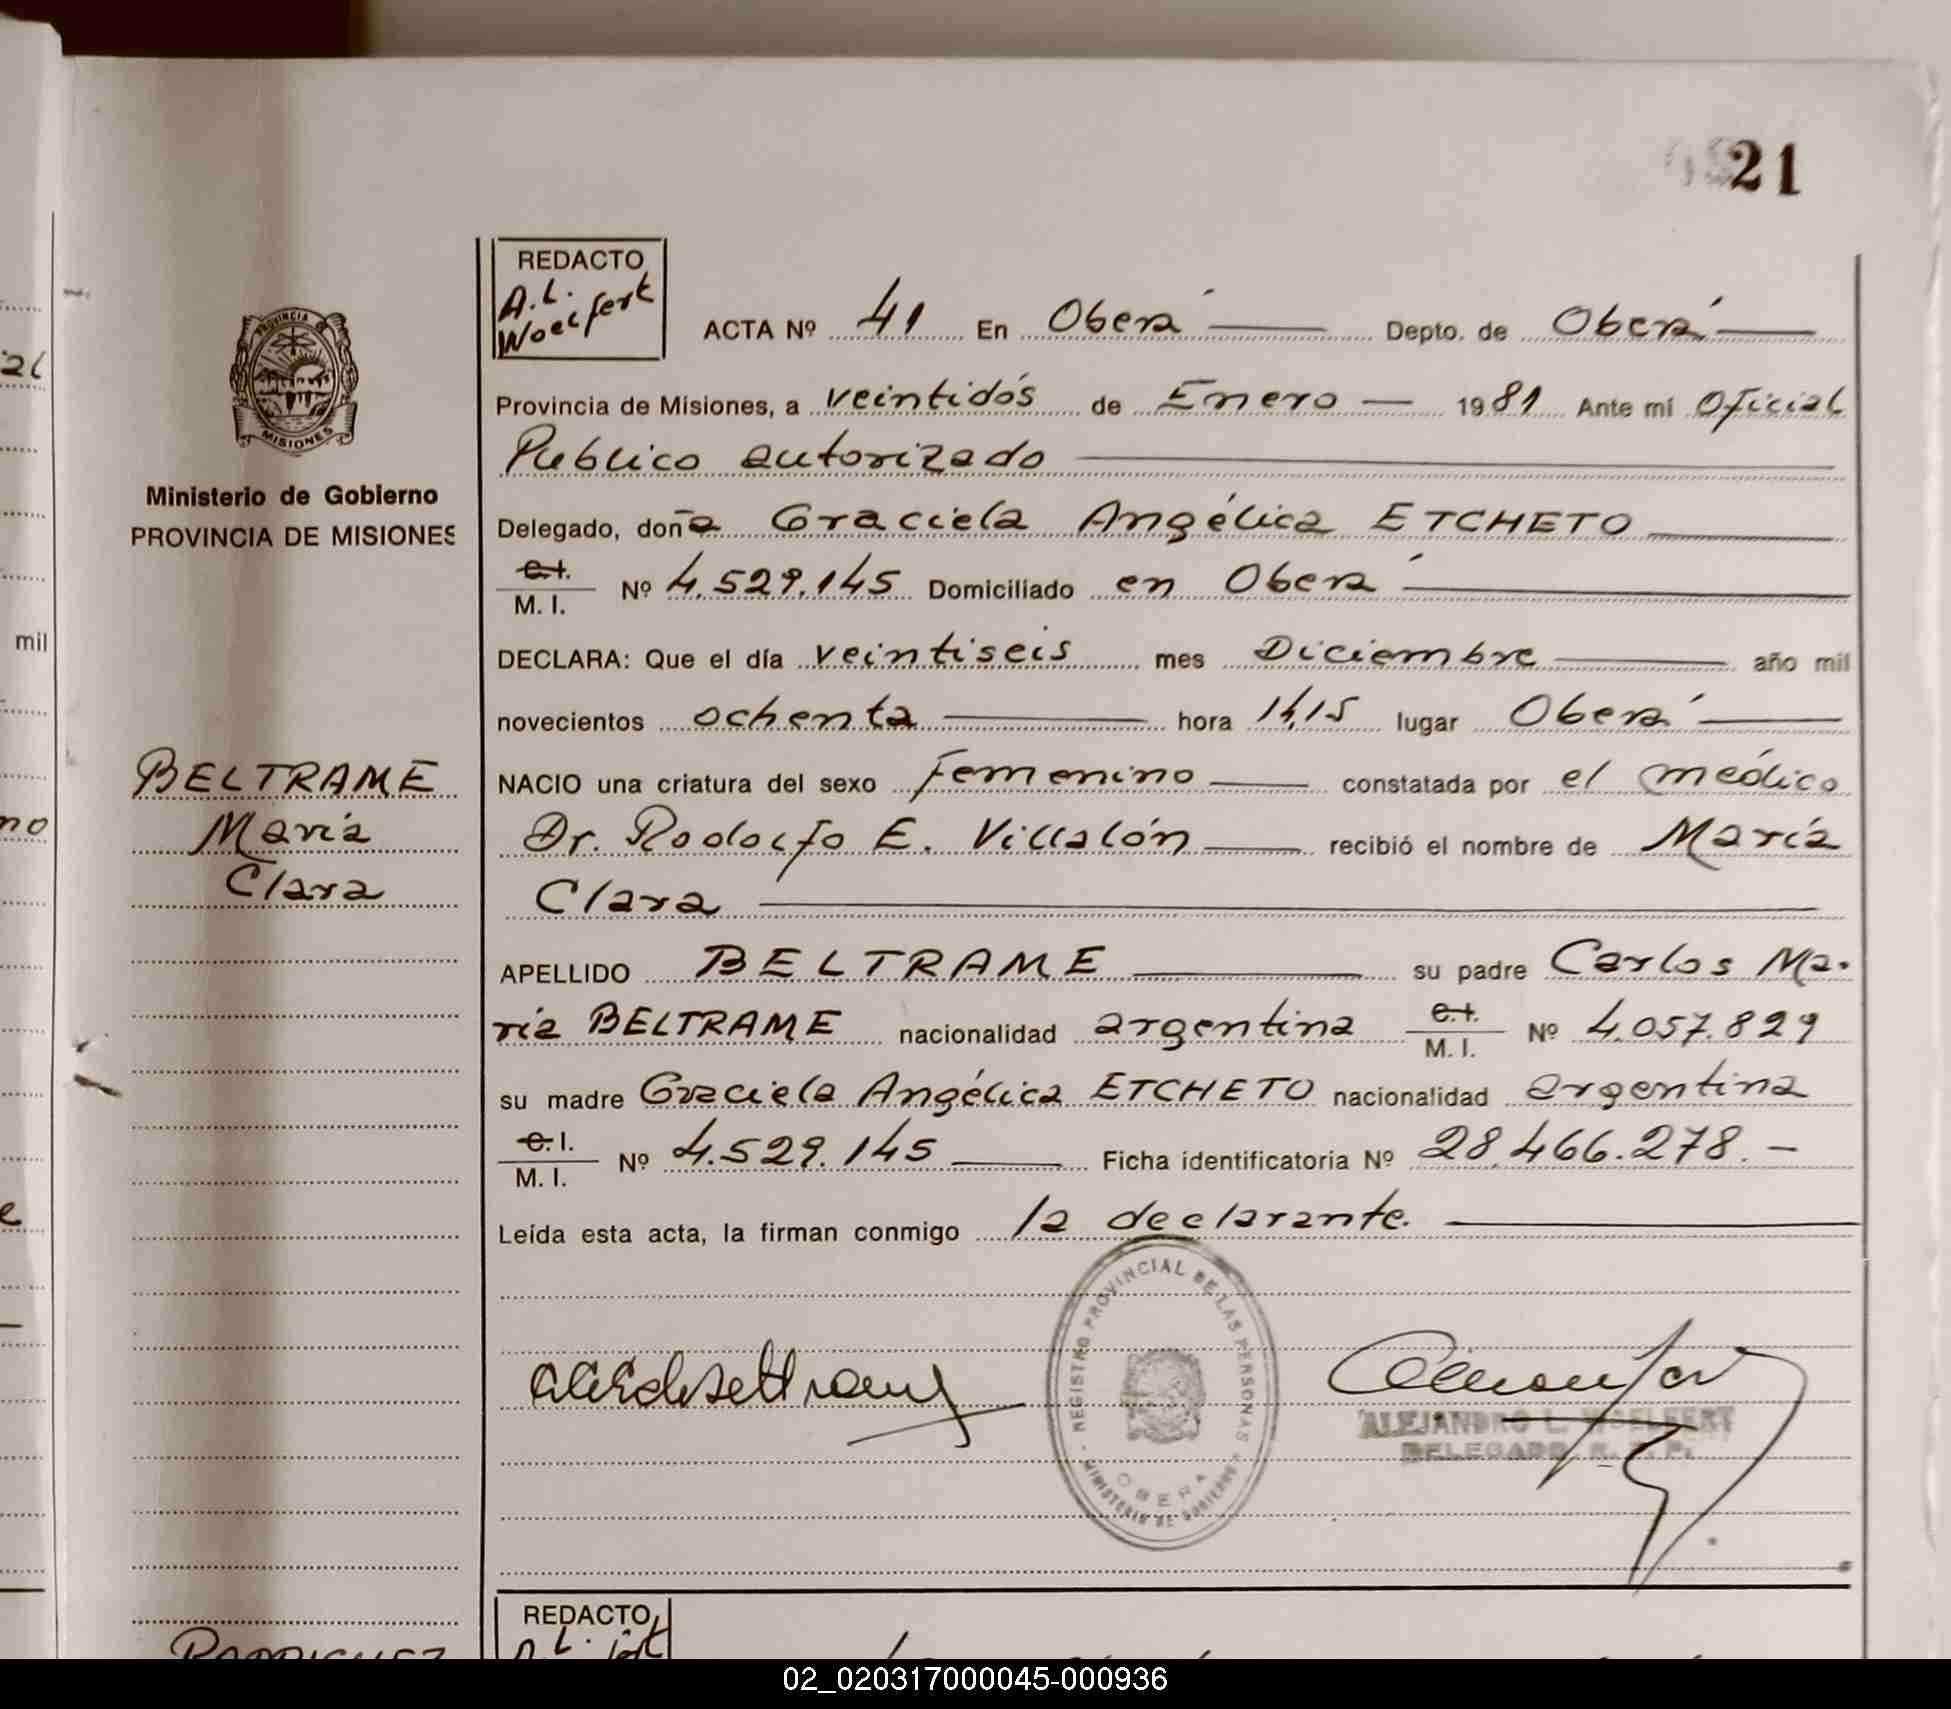 21
REDACTO
A.L.
Woelfert
ACTA Nº 41 En Oberá Depto. de Oberá
Provincia de Misiones, a veintidós de Enero 1981 Ante mí Oficial
Público autorizado
Delegado, doña Graciela Angélica ETCHETO
C.I.
M. I. Nº 4.529.145 Domiciliado en Oberá
DECLARA: Que el día veintiseis mes Diciembre año mil
novecientos ochenta hora lugar Oberá
NACIO una criatura del sexo femenino constatada por el médico
Dr. Rodolfo E. Villalón recibió el nombre de María
Clara
APELLIDO BELTRAME su padre Carlos Ma-
ría BELTRAME nacionalidad argentina C.I. M. I. Nº 4.057.829
su madre Graciela Angélica ETCHETO nacionalidad argentina
C.I.
M. I. Nº 4.529.145 Ficha identificatoria Nº 28.466.278.-
Leída esta acta, la firman conmigo la declarante.
PROVINCIA DE
MISIONES
Ministerio de Gobierno
PROVINCIA DE MISIONES
BELTRAME
María
Clara
REGISTRO PROVINCIAL DE LAS PERSONAS
OBERA
MINISTERIO DE GOBIERNO
ALEJANDRO L. WOELFERT
DELEGADO R. P. P.
REDACTO
A.L.
RODRIGUEZ
mil
02_020317000045-000936